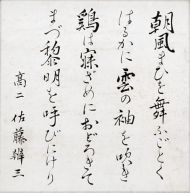 朝風まひを舞ふごとく
はるかに雲の袖を吹き
鶏は寐ざめにおどろきて
まづ黎明を呼びにけり
高二 佐藤輝三